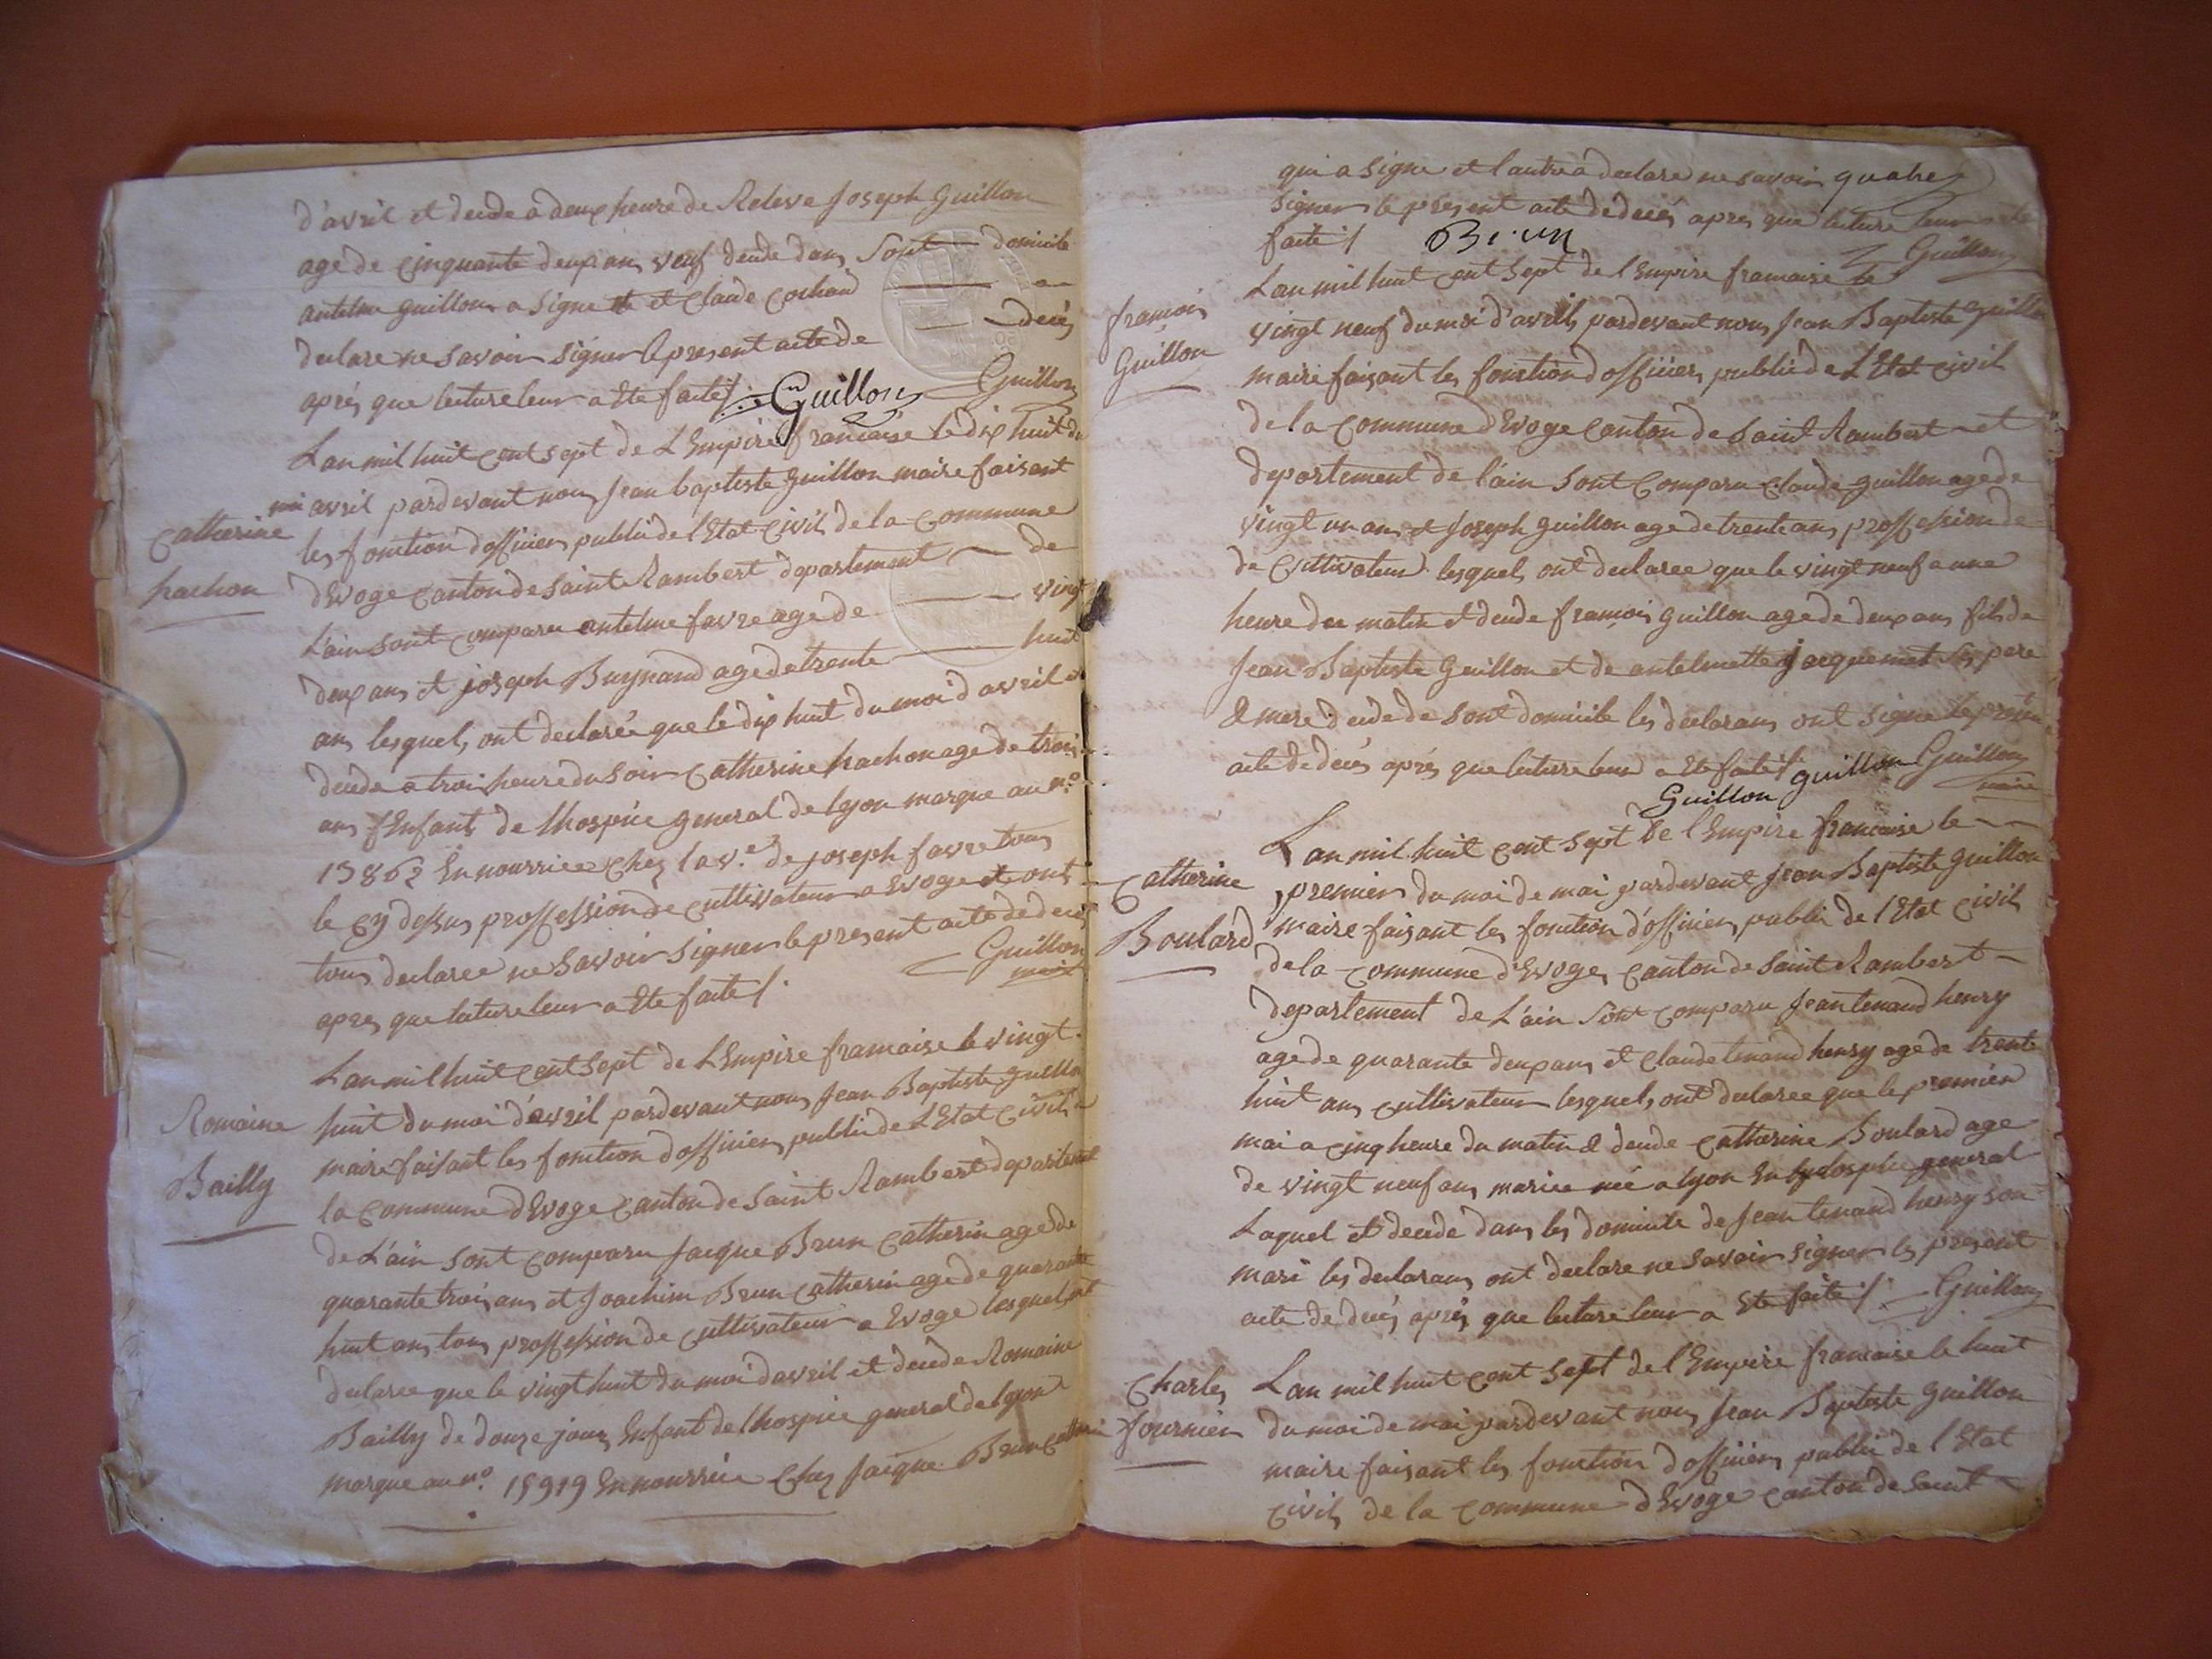 d'avril et decede a deux heure de Releve Joseph Guillon
age de cinquante deux ans veuf decede dans sont domicile
antelme guillon a signe et Claude Cochand a
declare ne savoir signer le present acte de decès
après que lecture leur a Ete faite /. Guillon Guillon
Catherine
hachon
Lan mil huit cent sept de L'Empire francaise le dix huit du
moi avril pardevant nous Jean baptiste Guillon maire faisant
les fonction d'officier public de l'Etat Civil de la Commune
d'Evoge Canton de Saint Rambert departement de
L'ain sont comparu antelme favre age de vingt
deux ans et joseph Buynand age de trente huit
ans lesquels ont declarée que le dix huit du moi d'avril et
decede a troi heure du soir Catherine hachon age de troi
ans Enfant de lhospice general de lyon marque au n.o
13862 En nourrice Chez la v.e de joseph favre tous
le Cy dessus proffession de Cultivateur a Evoge et ont
tous declaree ne savoir signer le present acte de decès
apres que lecture leur a Ete faite /. Guillon
maire
Romaine
Bailly
Lan mil huit cent sept de L'Empire francaise le vingt
huit du moi d'avril pardevant nous Jean Baptiste guillon
maire faisant les fonction d'officier public de L'Etat Civil de
la Commune d'Evoge Canton de Saint Rambert departement
de L'ain sont comparu Jacque Brun Catherin age de
quarante trois ans et Joachim Brun Catherin age de quarante
huit ans tous proffession de Cultivateur a Evoge lesquels ont
declaree que le vingt huit du moi d'avril et decede Romaine
Bailly de douze jours Enfant de lhospice general de lyon
marque au n.o 15919 En nourrice Chez Jacque Brun Catherin
qui a signe et lautre a declare ne savoir
signer le present acte de decès apres que lecture leur
faite /. Brun Guillon
francois
Guillon
Lan mil huit cent Sept de l'Empire francaise le
vingt neuf du moi d'avril pardevant nous Jean Baptiste Guillon
maire faisant les fonction d'officier public de L'Etat Civil
de la Commune d'Evoge Canton de Saint Rambert et
departement de l'ain sont Comparu Claude guillon age de
vingt un ans et Joseph guillon age de trente ans proffession de
de Cultivateur lesquels ont declaree que le vingt neuf a une
heure du matin et decede francois guillon age de deux ans fils de
Jean Baptiste Guillon et de antelmette jacquemet ses pere
& mere decede de sont domicile les declarans ont signe le present
acte de decès après que lecture leur a Ete faite /. guillon Guillon
Guillon maire
Catherine
Boulard
Lan mil huit cent sept de l'Empire francaise le
premier du moi de mai pardevant Jean Baptiste Guillon
maire faisant les fonction d'officier public de l'Etat Civil
de la commune d'Evoges Canton de Saint Rambert
departement de L'ain Sont comparu Jean tenand henry
age de quarante deux ans et Claude tenand henry age de trente
huit ans cultivateur lesquels ont declaree que le premier
mai a cinq heure du matin & decede Catherine Boulard age
de vingt neuf ans mariee née a lyon En lhospice general
Laquel et decede dans les domicile de Jean tenand henry son
mari les declarans ont declare ne savoir signer les present
acte de decès après que lecture leur a Ete faite /. Guillon
Charles
fournier
Lan mil huit cent sept de l'Empire francaise le huit
du moi de mai pardevant nous Jean Baptiste Guillon
maire faisant les fonction d'officier public de l'Etat
Civil de la commune d'Evoge canton de Saint